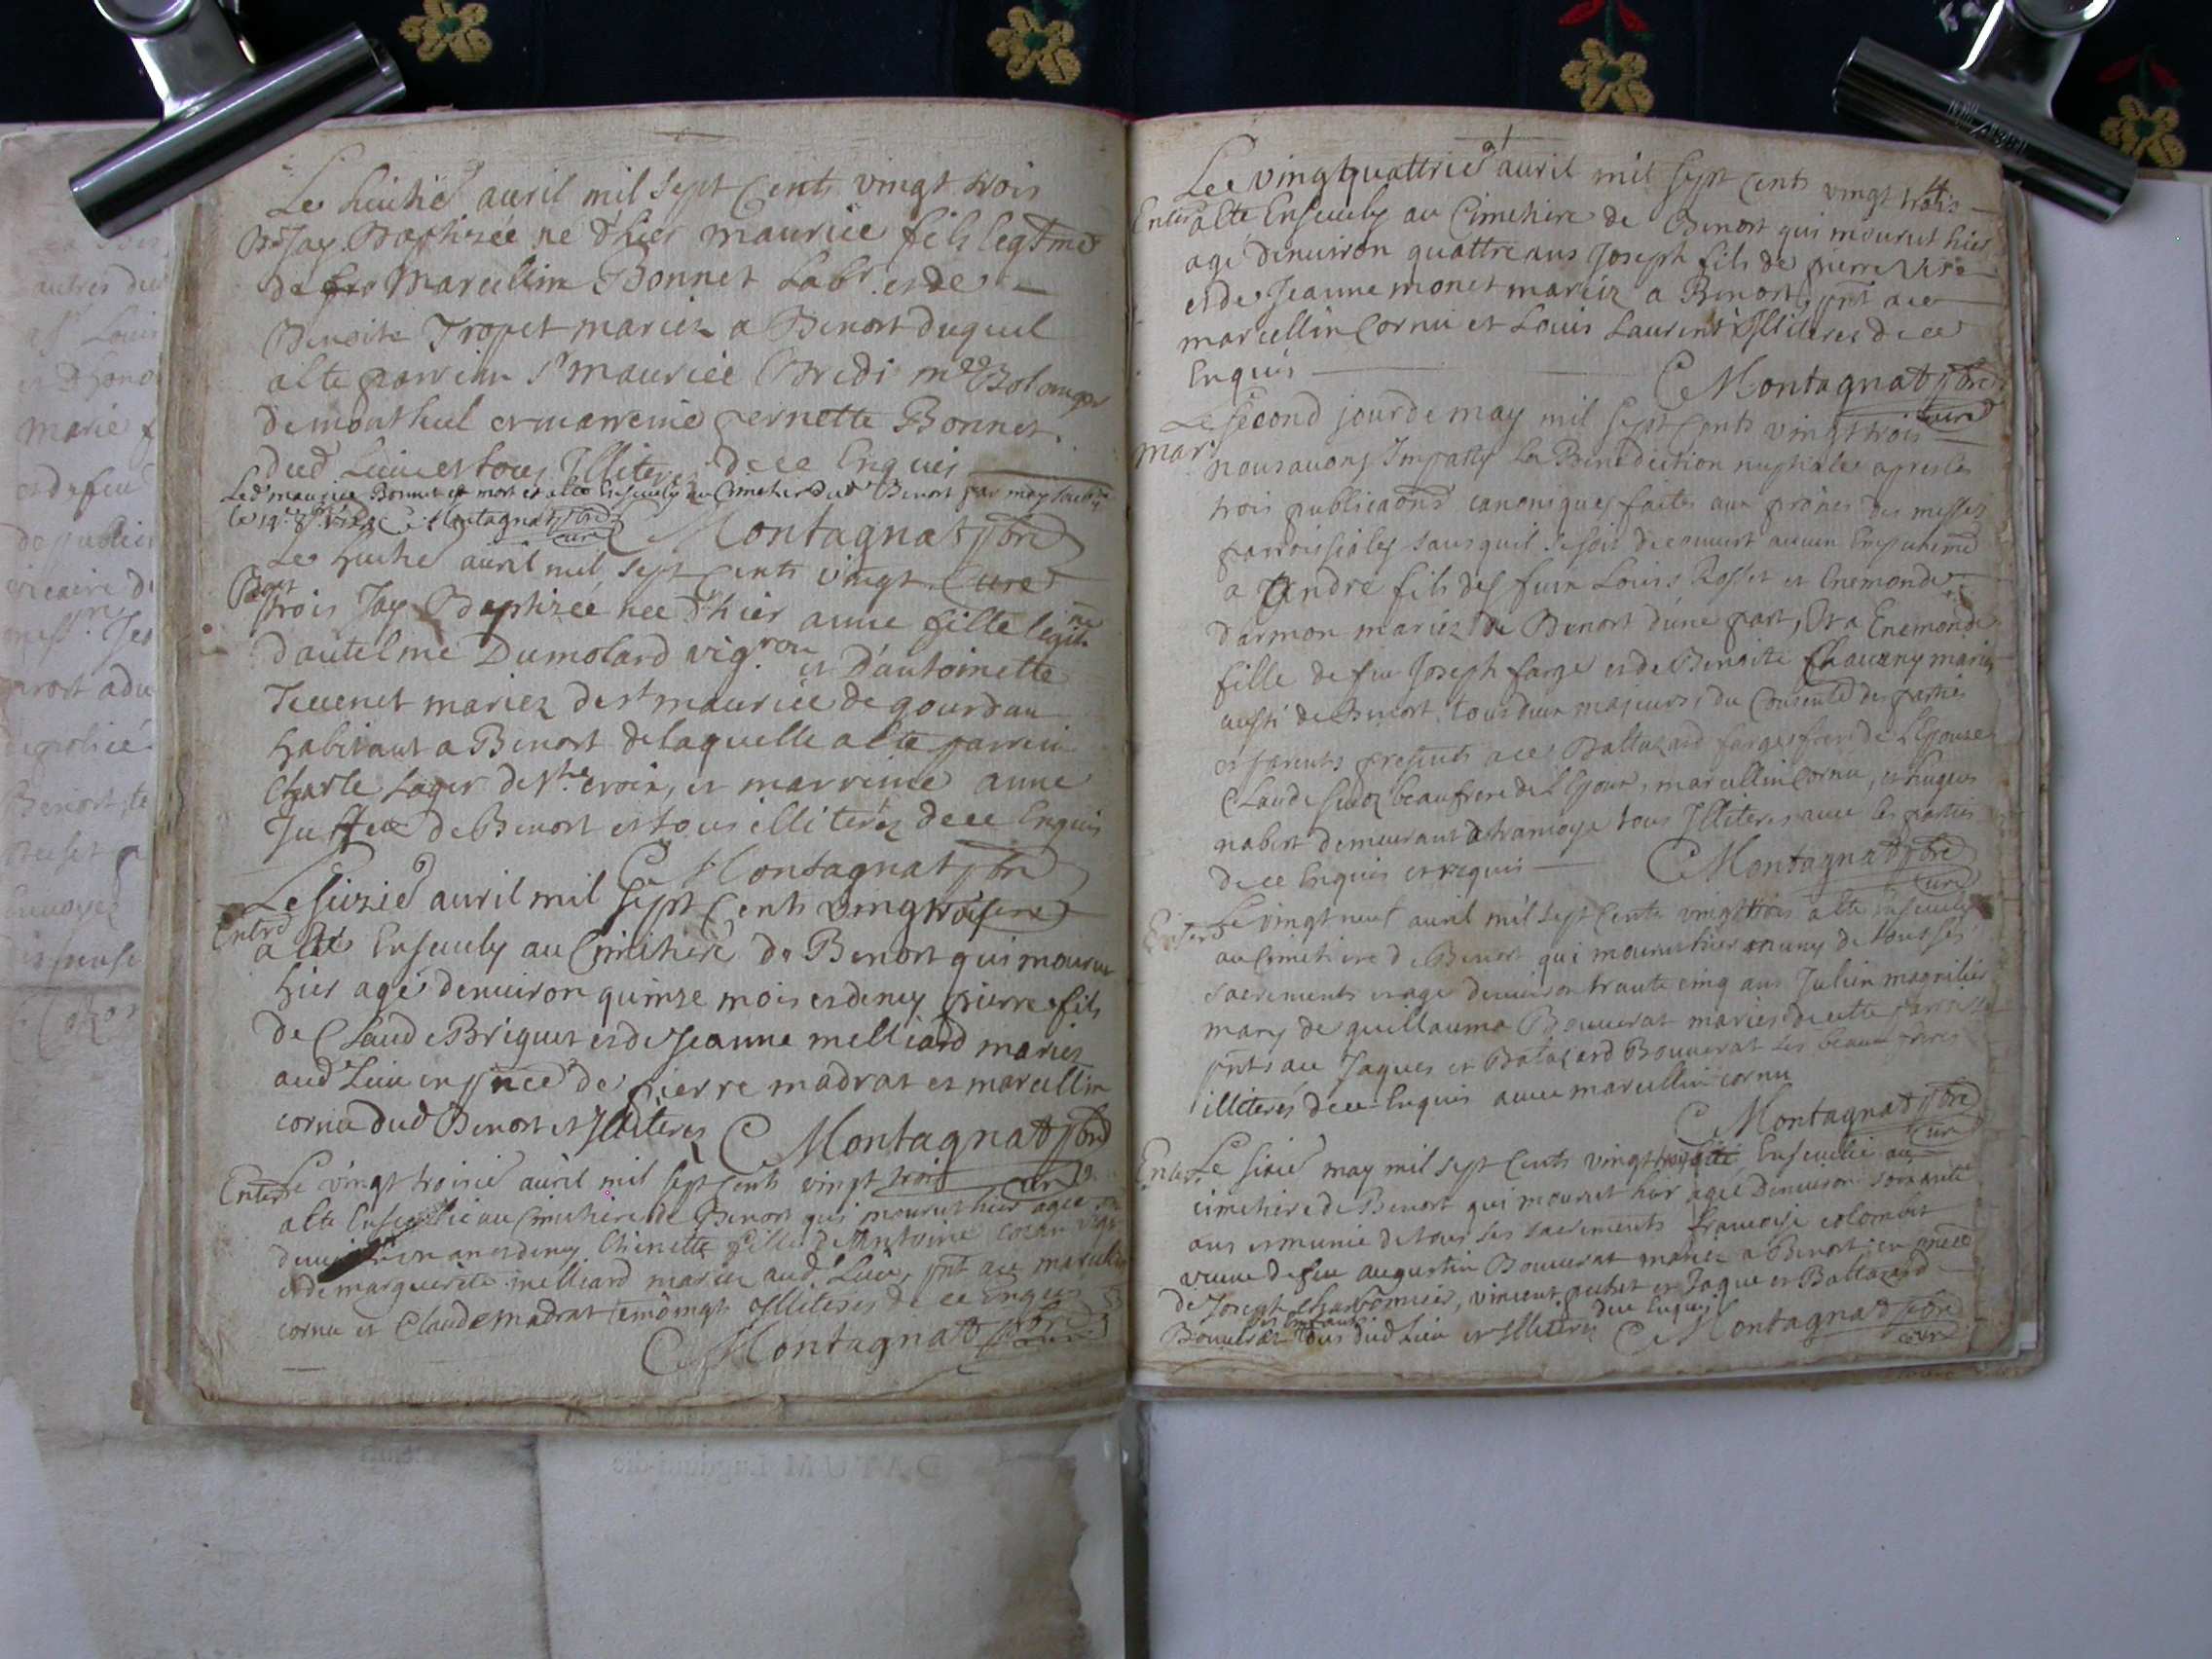 Le huitie avril mil sept cents vingt trois
Bt Jay Baptizée né d'hier maurice fils legtme
de feu Marcellin Bonnet Labr. et de
Benoite Tropet mariez a Benost duquel
a été parrein Sr maurice Bredi md Bolanger
de montluel et marreine pernette Bonnet
dud Lieu et tous Illiteres de ce Enquis
Led maurice Bonnet est mort et a été Ensevely au Cimetier dud Benost par moy
le 19e 8bre Montagnat ptre curé
C Montagnat ptre
Le huitie avril mil sept cents vingt Curé
Bapt trois Jay Baptizée nee d'hier anne fille legitme
d'antelme Dumolard vigron et d'antoinette
Tevenet mariez de st maurice de gourdan
habitant a Benost de laquelle a été parrein
Charle Loger de ste croix, et marreine anne
Juffet de Benost et tous illiterez de ce Enquis
C Montagnat ptre
Le sizie avril mil sept cents vingt trois curé
Enterd a été Ensevely au Cimitiere de Benost qui mourut
hier agé denviron quinze mois et demy pierre fils
de Claude Briquet et de Jeanne melliard mariez
aud Lieu en pnce de pierre madrat et marcellin
cornu dud Benost et Illiteres C Montagnat ptre
Enterd Le vingt troisie avril mil sept cents vingt trois curé
a été Ensevelie au Cimitiere de Benost qui mourut hier agée
denviron un an et demy Etienette fille de Antoine cozan vigr
et de marguerite melliard mariez aud. Lieu, pnt ace marcellin
cornu et Claude madrat temoings Illiteres de ce Enquis
C Montagnat ptre curé
4
Le vingtquattrie avril mil sept cents vingt trois
Enterd a été Ensevely au Cimetiere de Benost qui mourut hier
agé denviron quattre ans Joseph fils de pierre
et de Jeanne monet mariez a Benost, pnt ace
marcellin Cornu et Louis Laurent Illiteres de ce
Enquis C Montagnat ptre
Le second jour de may mil sept cents vingt trois curé
mar. nous avons Imparty La Benediction nuptiale apres les
trois publicaons canoniques faites aux prônes des messes
parroissiales sans quil se soit decouvert aucun Empeschemt
a Andre fils des feux Louis Rosset et Enemonde
darmon mariez de Benost d'une part, Et a Enemonde
fille de feu Joseph farge et de Benoite Chavany mariez
aussi de Benost, tous deux majeurs, du Consentt des parties
et parents presents ace Baltazard farge frere de L'Epouse
Claude beaufrere de L'Epoux, marcellin Cornu, et hugues
nabert demeurant a tramoye tous Illiteres avec les parties
de ce Enquis et requis C Montagnat ptre
Enterd Le vingt neuf avril mil sept cents vingt trois a été Ensevely curé
au Cimetiere de Benost qui mourut hier muny de tous ses
sacrements et agé denviron trante cinq ans Julien magnilier
mary de guillauma Bouverat mariez de cette parroisse
pnts ace Jaques et Batazard Bouverat ses beaux freres
illiterés de ce Enquis avec marcellin cornu
C Montagnat ptre
Enter. Le sixie may mil sept cents vingt trois a été Ensevelie au curé
cimetiere de Benost qui mourut hier agée denviron soixante
ans et munie de tous ses sacrements francoise colombet
veuve de feu augustin Bouverat mariez a Benost, en pnce
de Joseph charbomier, vincent pechet et Jaque et Baltazard
ses Enfants de ce Enquis
Bouverat tous dud Lieu et Illiteres C Montagnat ptre curé